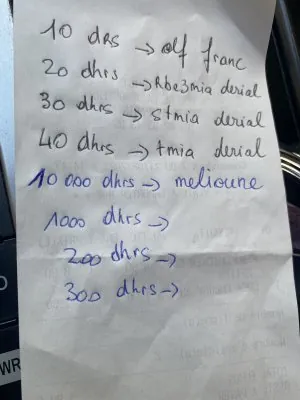 10 drs → olf franc
20 dhrs → Rbe3mia derial
30 dhrs → stmia derial
40 dhrs → tmia derial
10 000 dhrs → melioune
1000 dhrs →
200 dhrs →
300 dhrs →
WR